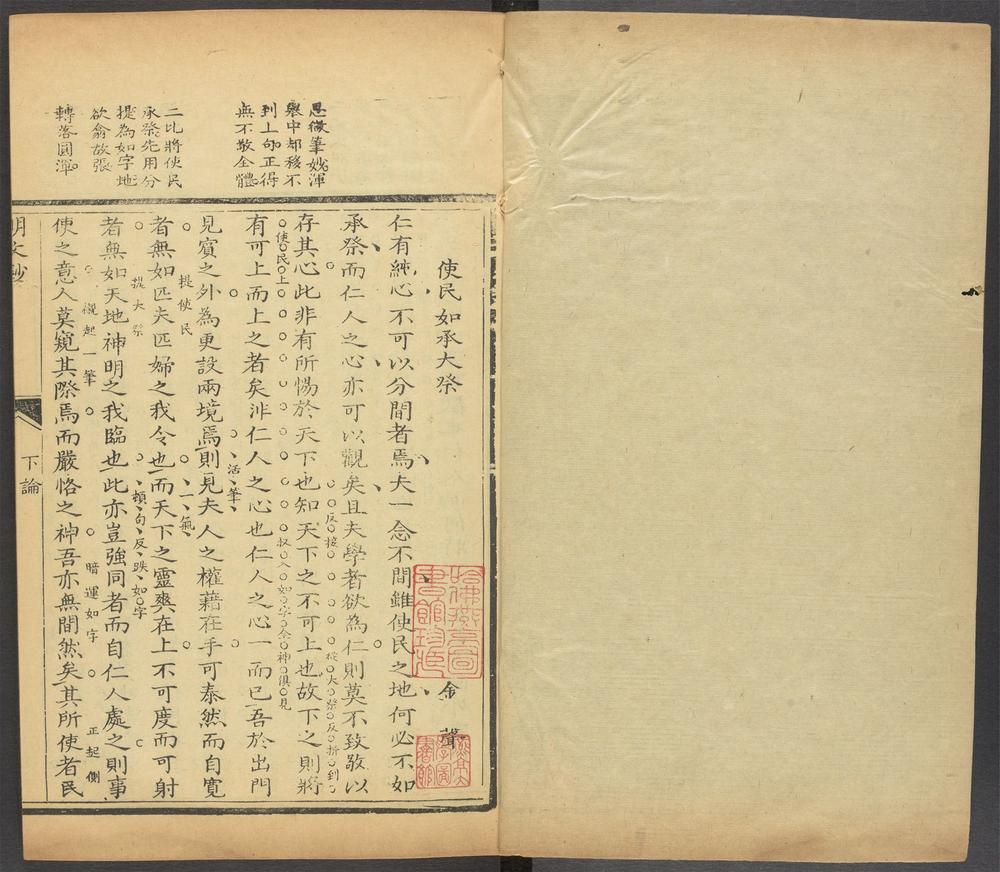 使民如承大祭
金聲
仁有純心不可以分間者焉夫一念不間雖使民之地何必不如
承祭而仁人之心亦可以觀矣且夫學者欲為仁則莫不致敬以
存其心此非有所惕於天下也知天下之不可上也故下之則將
有可上而上之者矣非仁人之心也仁人之心一而已吾於出門
見賓之外為更設兩境焉則見夫人之權藉在手可泰然而自寬
者無如匹夫匹婦之我令也而天下之靈爽在上不可度而可射
者無如天地神明之我臨也此亦豈強同者而自仁人處之則事
使之意人莫窺其際焉而嚴恪之神吾亦無間然矣其所使者民
思微筆妙渾
舉中却移不
到上句正得
無不敬全體
二比將使民
承祭先用分
提為如字地
欲翕故張
轉落圓渾
反接
從大祭反折到
使民上
收入如字全神俱見
活筆
提使民
一氣
提大祭
頓句反跌如字
襯起一筆
暗運如字
正起側
明文鈔
下論
哈佛燕京圖書館珍藏